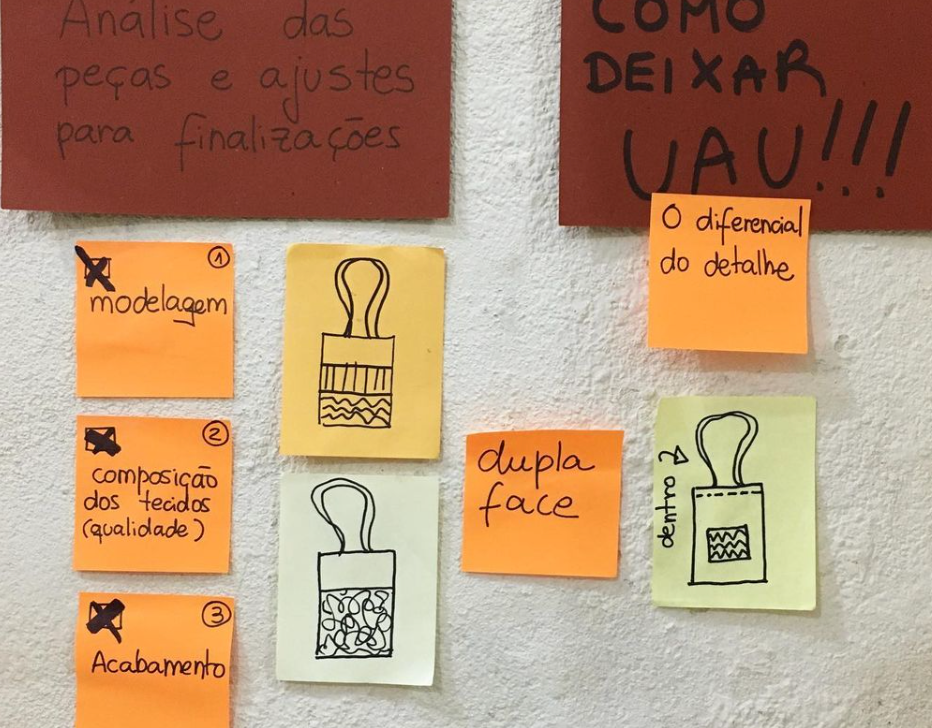 Análise das
peças e ajustes
para finalizações
COMO
DEIXAR
UAU!!!
O diferencial
do detalhe
1
modelagem
2
composição
dos tecidos
(qualidade)
3
Acabamento
dupla
face
dentro